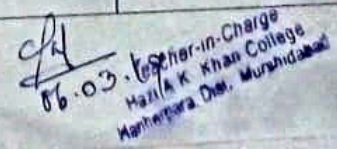 06.03.
Teacher-in-Charge
Hazi A K Khan College
Hariharpara Dist. Murshidabad